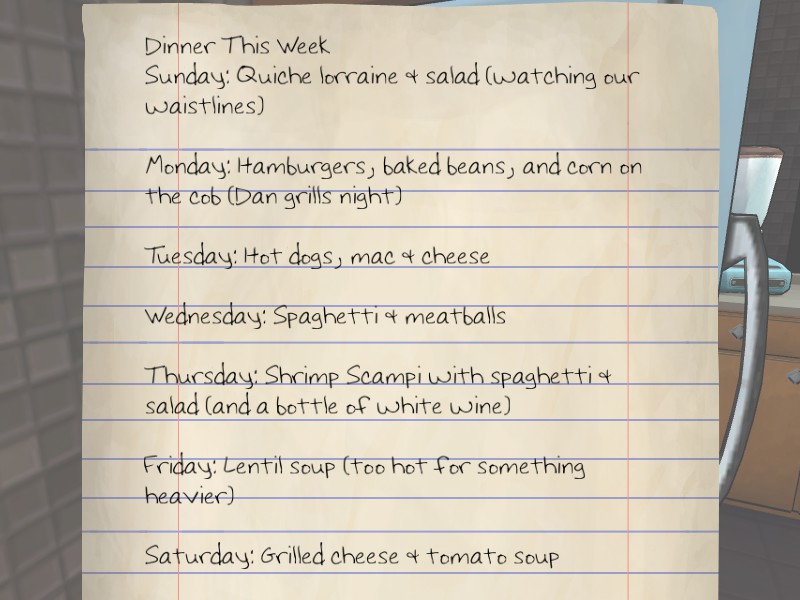 Dinner This Week
Sunday: Quiche lorraine & salad (watching our
waistlines)
Monday: Hamburgers, baked beans, and corn on
the cob (Dan grills night)
Tuesday: Hot dogs, mac & cheese
Wednesday: Spaghetti & meatballs
Thursday: Shrimp Scampi with spaghetti &
salad (and a bottle of white wine)
Friday: Lentil soup (too hot for something
heavier)
Saturday: Grilled cheese & tomato soup